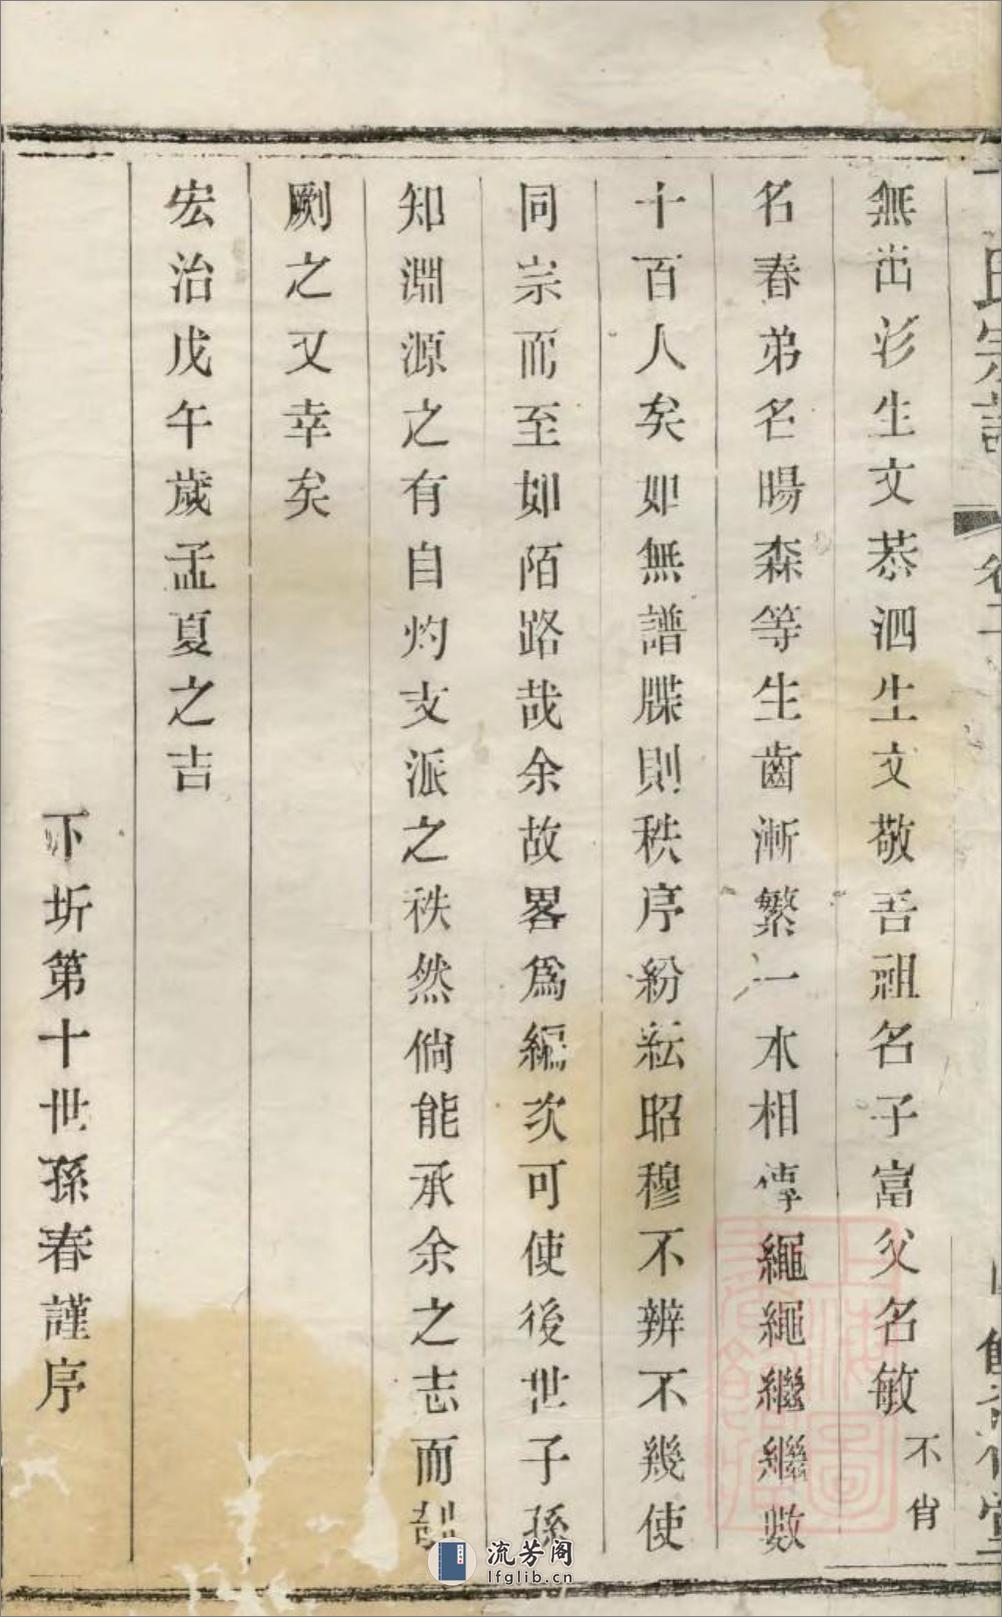 氏宗譜 卷一
無出彣生文恭泗生文敬吾祖名子富父名敏不肖
名春弟名暘森等生齒漸繁一水相傳繩繩繼繼數
十百人矣如無譜牒則秩序紛紜昭穆不辨不幾使
同宗而至如陌路哉余故畧爲編次可使後世子孫
知淵源之有自灼支派之秩然倘能承余之志而剞
劂之又幸矣
宏治戊午歲孟夏之吉
下圻第十世孫春謹序
流芳阁
lfglib.cn